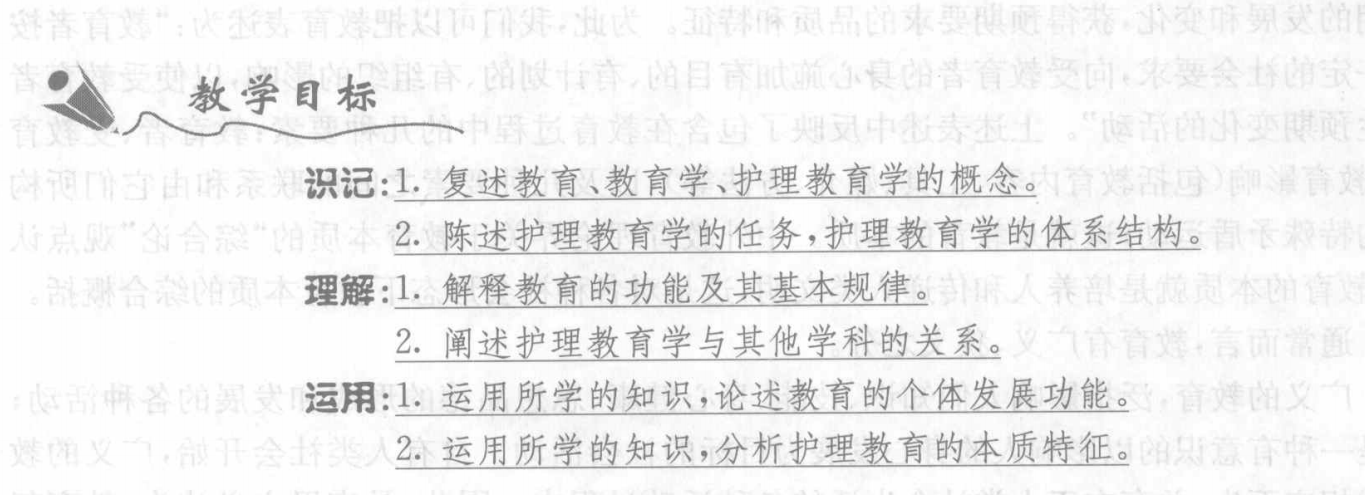 教学目标
识记:1. 复述教育、教育学、护理教育学的概念。
2. 陈述护理教育学的任务,护理教育学的体系结构。
理解:1. 解释教育的功能及其基本规律。
2. 阐述护理教育学与其他学科的关系。
运用:1. 运用所学的知识,论述教育的个体发展功能。
2. 运用所学的知识,分析护理教育的本质特征。